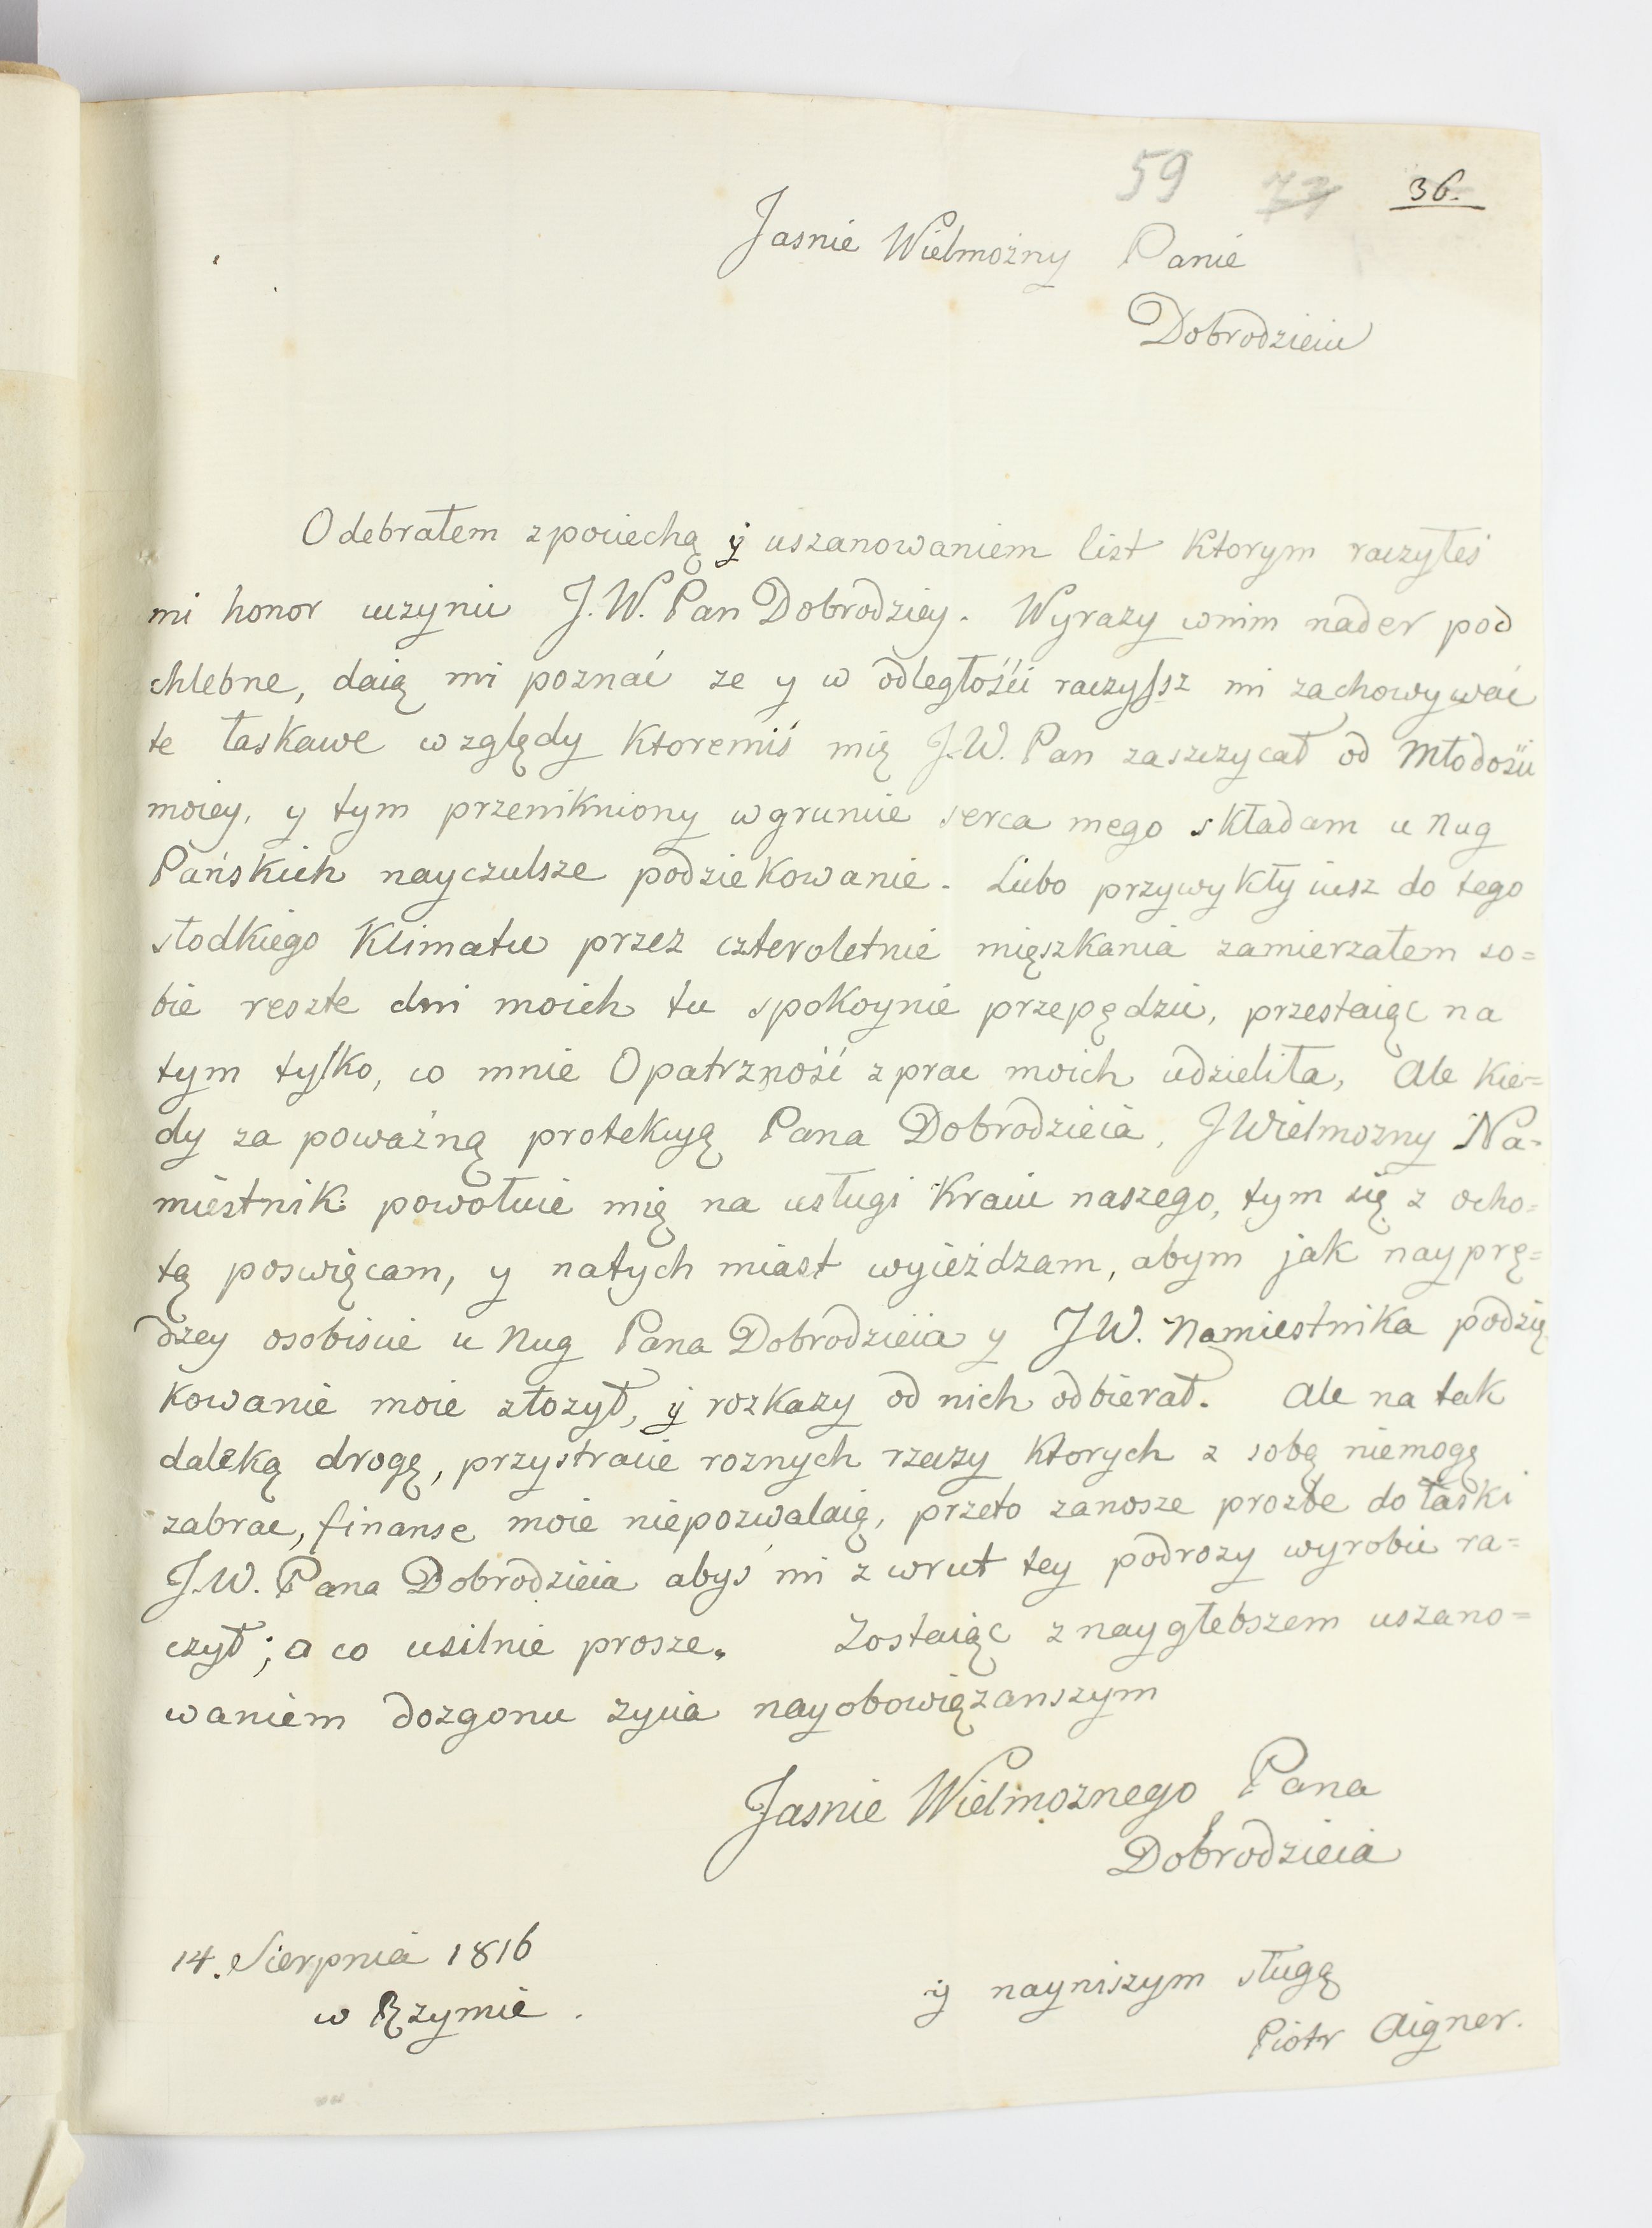 59 77 36.
Jasnie Wielmożny Panie
Dobrodzieiu
Odebrałem zpociechą y uszanowaniem list Ktorym raczyłeś
mi honor uczynic J.W. Pan Dobrodziey. Wyrazy wnim nader pod
chlebne, daią mi poznać ze y w odległości raczyssz mi zachowywać
te łaskawe względy Ktoremiś mię J.W. Pan zaszczycał od Młodości
moiey, y tym przenikniony wgruncie serca mego składam u Nug
Pańskich nayczulsze podziekowanie. Lubo przywykły iusz do tego
słodkiego Klimatu przez czteroletnie mięszkania zamierzałem so=
bie reszte dni moich tu spokoynie przepędzic, przestaiąc na
tym tylko, co mnie Opatrzność zprac moich udzieliła, Ale Kie=
dy za poważną protekcyą Pana Dobrodzieia, JWielmozny Na=
miestnik powołuie mię na usługi Kraiu naszego, tym się z ocho=
tą poswięcam, y natych miast wyieżdzam, abym jak nayprę=
dzey osobiscie u Nug Pana Dobrodzieiia y JW. Namiestnika podzię
kowanie moie złozył, y rozkazy od nich odbierał. Ale na tak
daleką drogę, przystracie roznych rzeczy Ktorych z sobą niemogę
zabrac, finanse moie niepozwalaią, przeto zanosze prozbe do łaski
J.W. Pana Dobrodzieia abyś mi zwrut tey podrozy wyrobic ra=
czył; a co usilnie prosze. Zostaiąc znaygłebszem uszano=
waniem dozgonu zycia nayobowiązanszym
Jasnie Wielmoznego Pana
Dobrodzieia
14. Sierpnia 1816
w Rzymie.
y nayniszym sługą
Piotr Aigner.